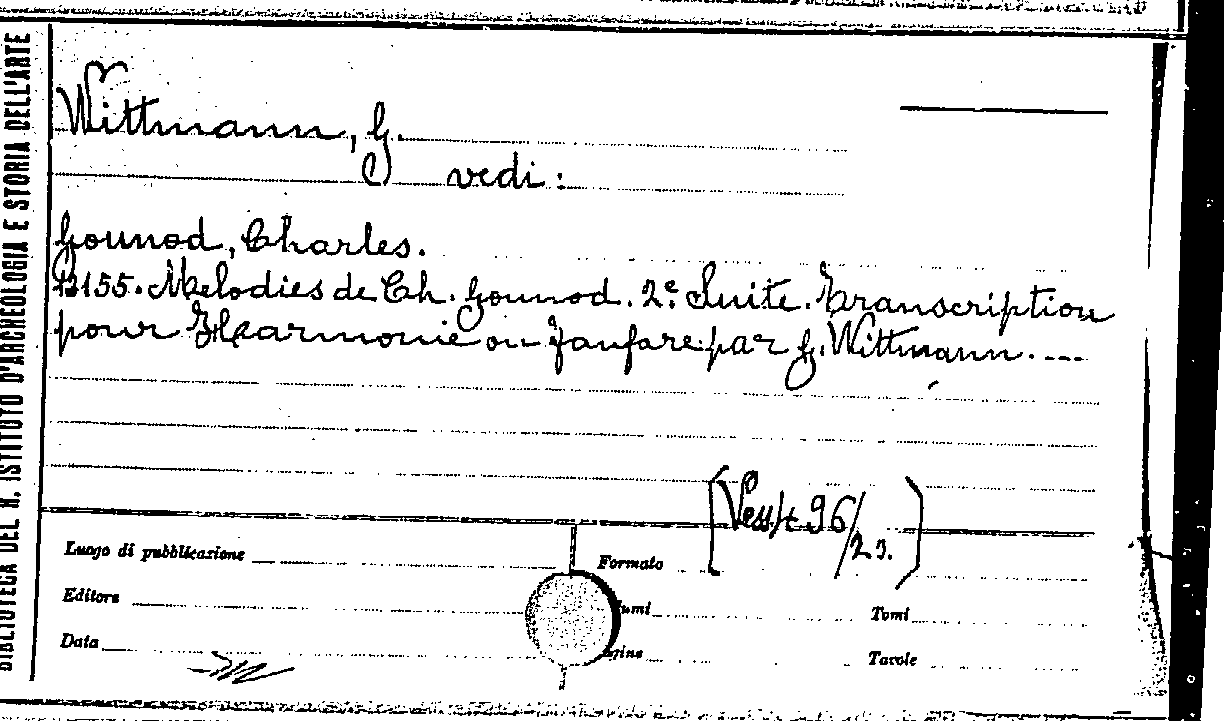 BIBLIOTECA DEL R. ISTITUTO D'ARCHEOLOGIA E STORIA DELL'ARTE
Wittmann, G.
vedi :
Gounod, Charles.
13155. Melodies de Ch. Gounod. 2e Suite. Transcription
pour Harmonie ou fanfare par G. Wittmann. ---
[Vess/t 96/23.]
Luogo di pubblicazione
Formato
Editore
Tomi
Data
Tavole